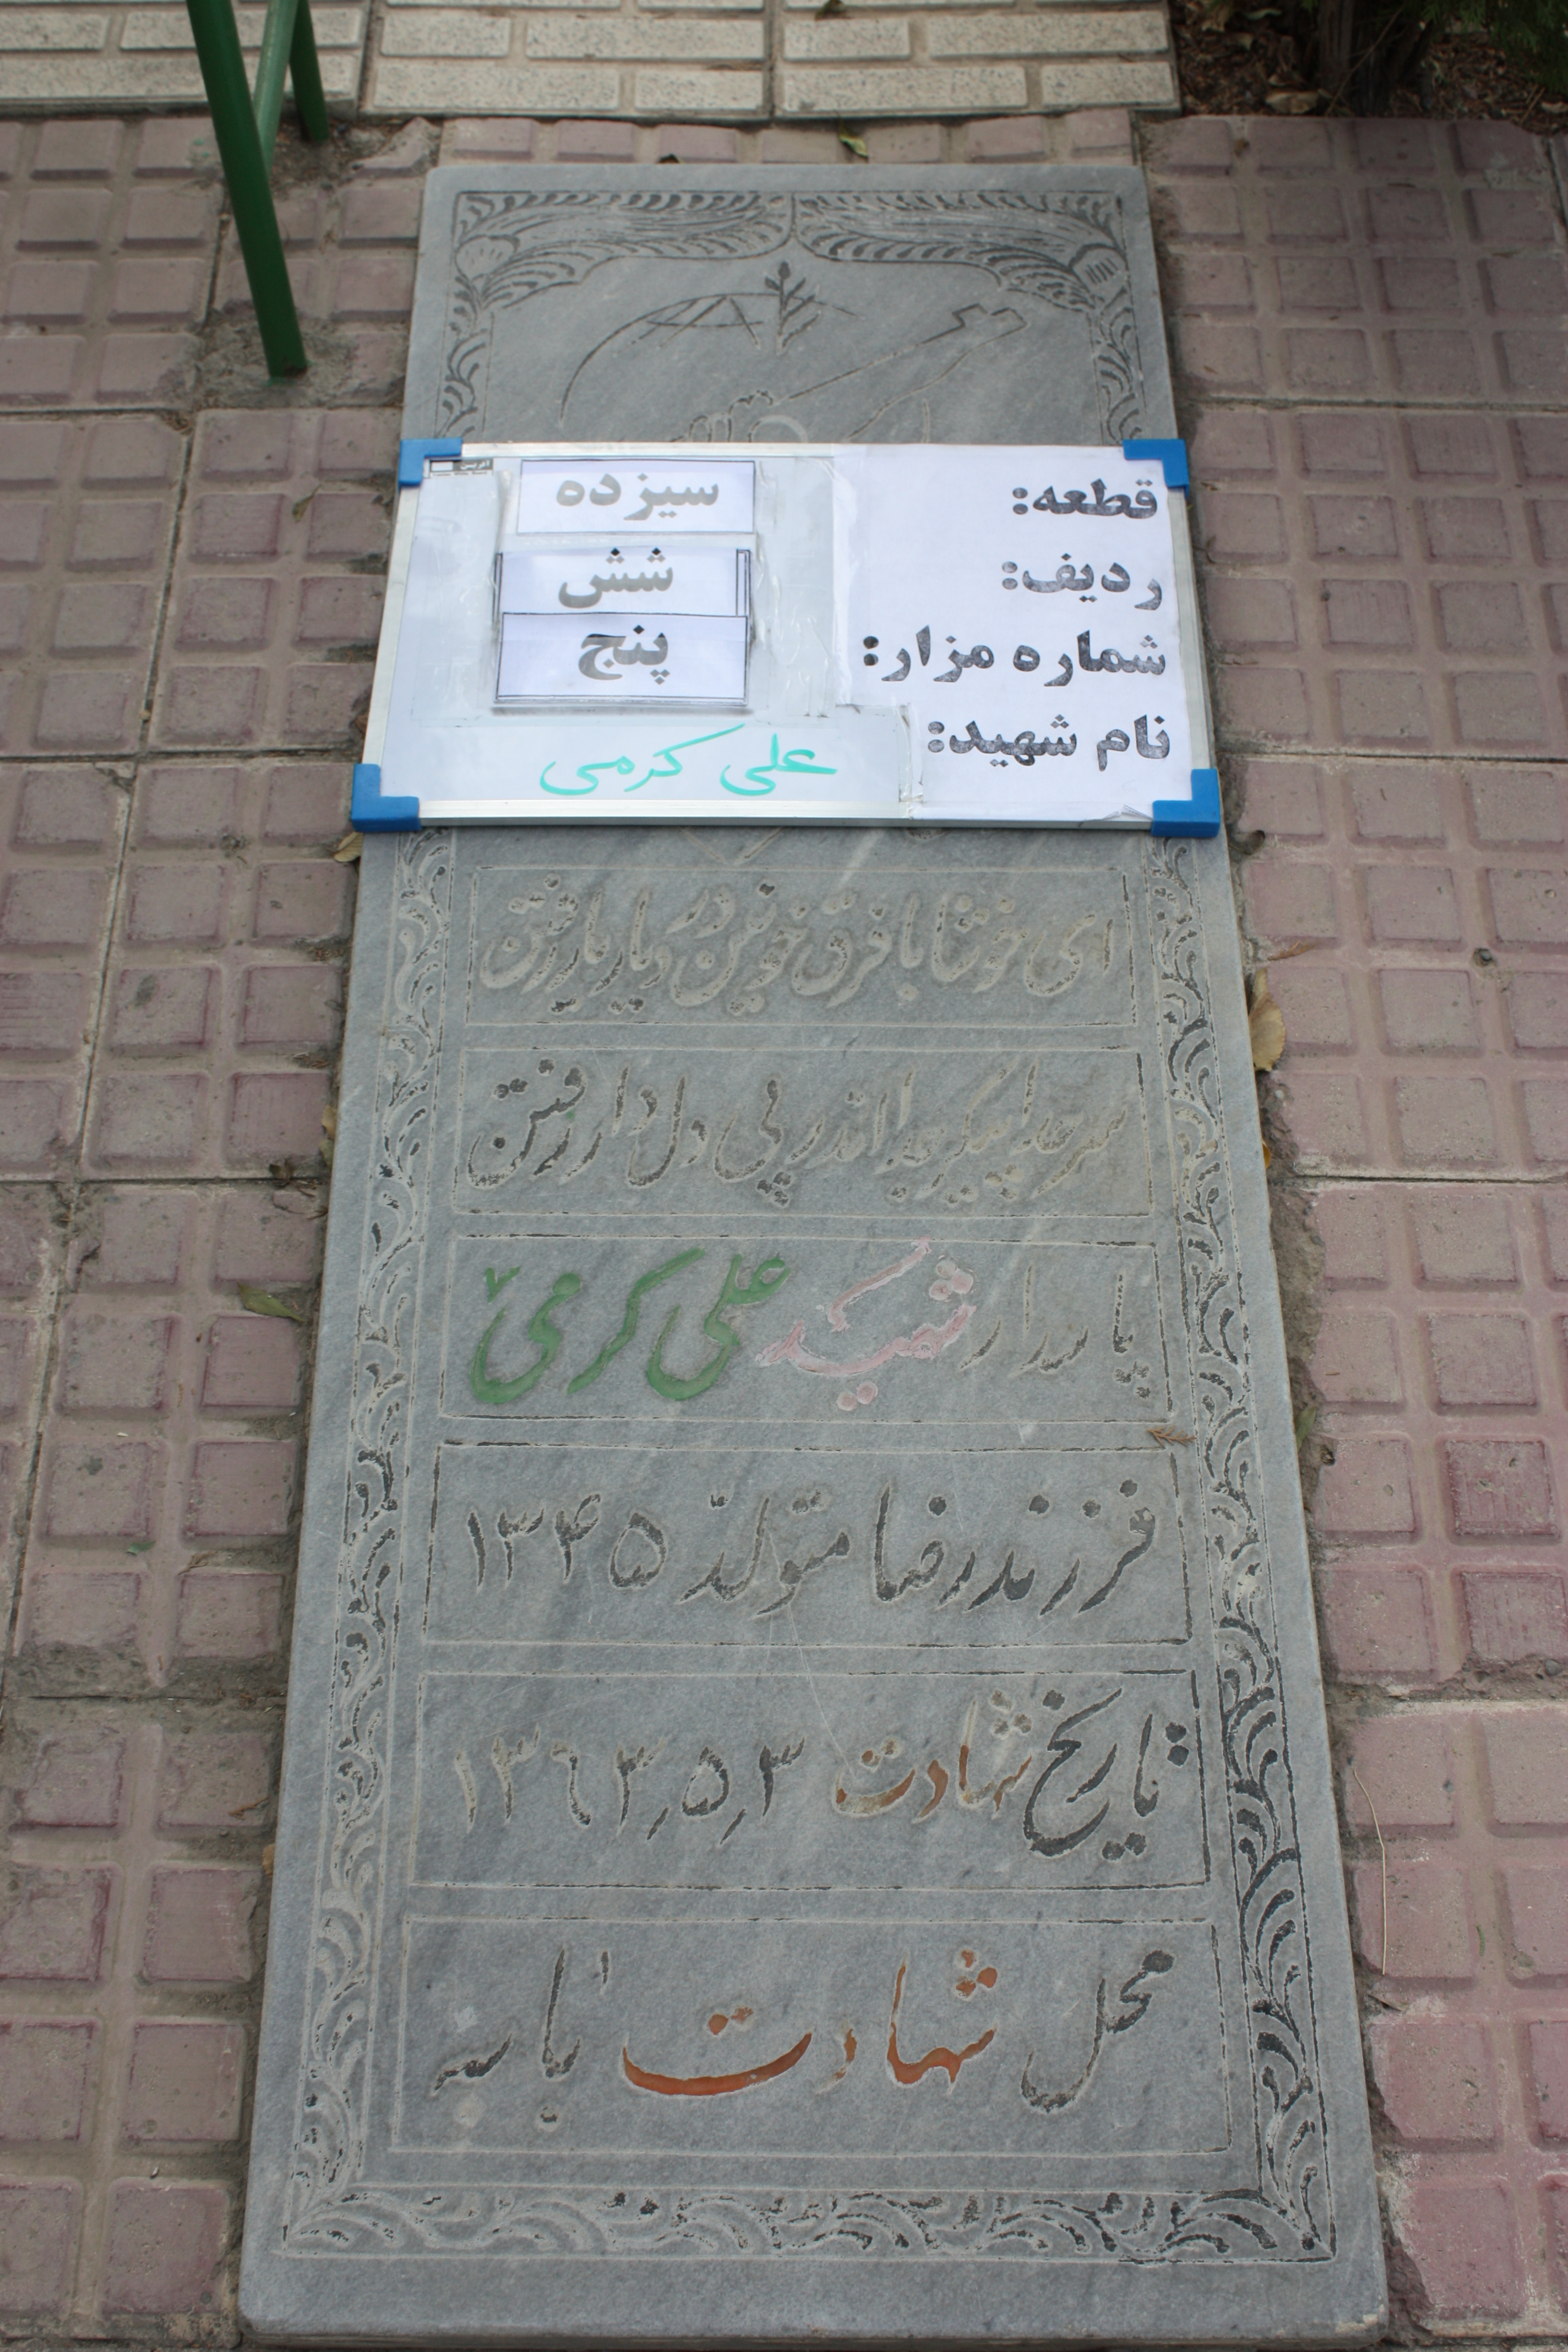 قطعه: سیزده
ردیف: شش
شماره مزار: پنج
نام شهید: علی کرمی
ای خوشا با فرق خونین در دیار یار رفتن
سر جدا پیکر جدا اندر پی دل دار رفتن
پاسدار شهید علی کرمی
فرزند رضا متولد ۱۳۴۵
تاریخ شهادت ۱۳۶۳٫۵٫۳
محل شهادت بانه